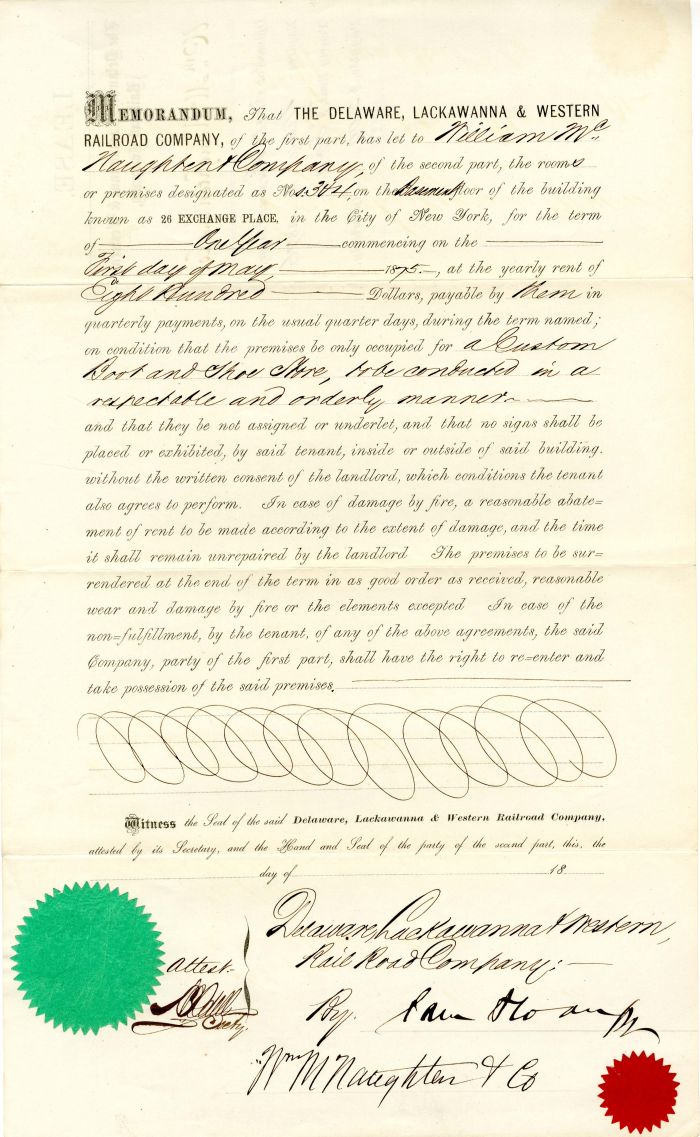 MEMORANDUM, That THE DELAWARE, LACKAWANNA & WESTERN
RAILROAD COMPANY, of the first part, has let to William Mc.
Naughten & Company, of the second part, the rooms
or premises designated as Nos. 3 & 4, on the Basement floor of the building
known as 26 EXCHANGE PLACE, in the City of New York, for the term
of One Year commencing on the
First day of May, 1875, at the yearly rent of
Eight Hundred Dollars, payable by them in
quarterly payments, on the usual quarter days, during the term named;
on condition that the premises be only occupied for a Custom
Boot and Shoe Store, to be conducted in a
respectable and orderly manner
and that they be not assigned or underlet, and that no signs shall be
placed or exhibited, by said tenant, inside or outside of said building.
without the written consent of the landlord, which conditions the tenant
also agrees to perform. In case of damage by fire, a reasonable abate=
ment of rent to be made according to the extent of damage, and the time
it shall remain unrepaired by the landlord The premises to be sur=
rendered at the end of the term in as good order as received, reasonable
wear and damage by fire or the elements excepted In case of the
non=fulfillment, by the tenant, of any of the above agreements, the said
Company, party of the first part, shall have the right to re=enter and
take possession of the said premises.
Witness the Seal of the said Delaware, Lackawanna & Western Railroad Company,
attested by its Secretary, and the Hand and Seal of the party of the second part, this, the
day of 18
Delaware, Lackawanna & Western,
Rail Road Company:
Attest
By. Sam Sloan
Secty
Wm McNaughten & Co